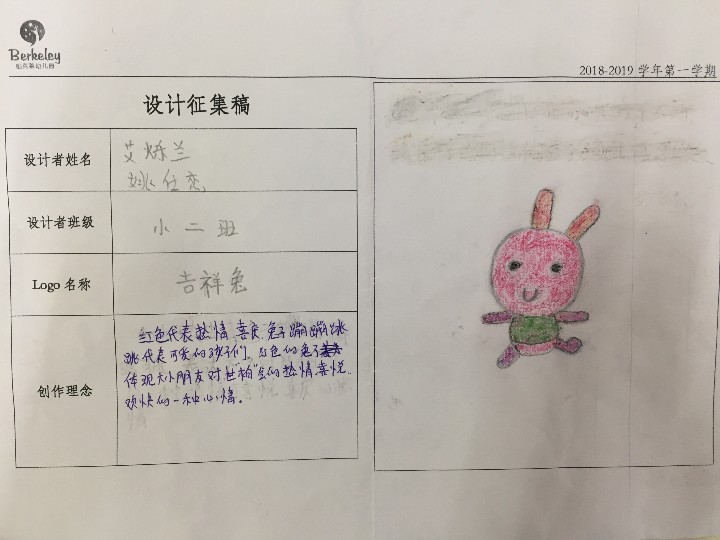 Berkeley
2018-2019 学年第一学期
设计征集稿
设计者姓名
艾烁兰
姚仕恋
设计者班级
小二班
Logo 名称
吉祥兔
创作理念
红色代表热情、喜庆.兔子蹦蹦跳
跳代表可爱的孩子们。红色的兔子
体现大小朋友对世柏"会的热情喜悦、
欢快的一种心情。